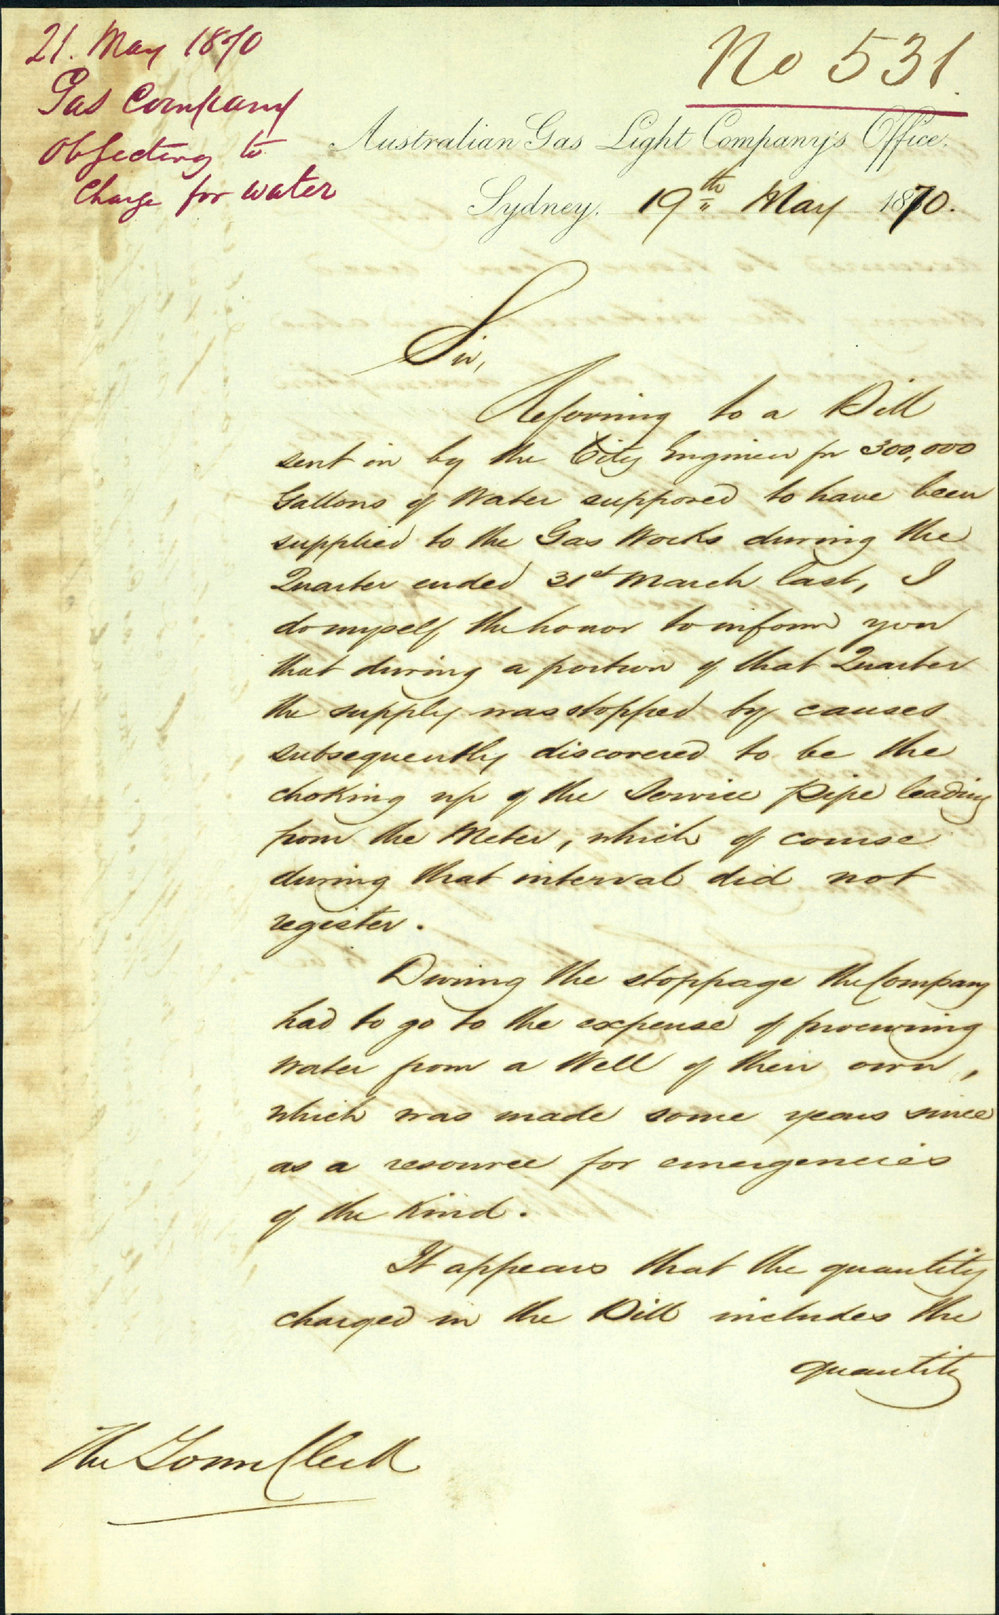 21. May 1870
Gas Company
Objecting to
Charge for water
No 531.
Australian Gas Light Company's Office.
Sydney, 19th May 1870.
Sir,
Referring to a Bill
sent in by the City Engineer for 300,000
Gallons of Water supposed to have been
supplied to the Gas Works during the
Quarter ended 31st March last, I
do myself the honor to inform you
that during a portion of that Quarter
the supply was stopped by causes
subsequently discovered to be the
choking up of the Service Pipe leading
from the Meter, which of course
during that interval did not
register.
During the stoppage the Company
had to go to the expense of procuring
Water from a Well of their own,
which was made some years since
as a resource for emergencies
of the kind.
It appears that the quantity
charged in the Bill includes the
quantity
The Town Clerk